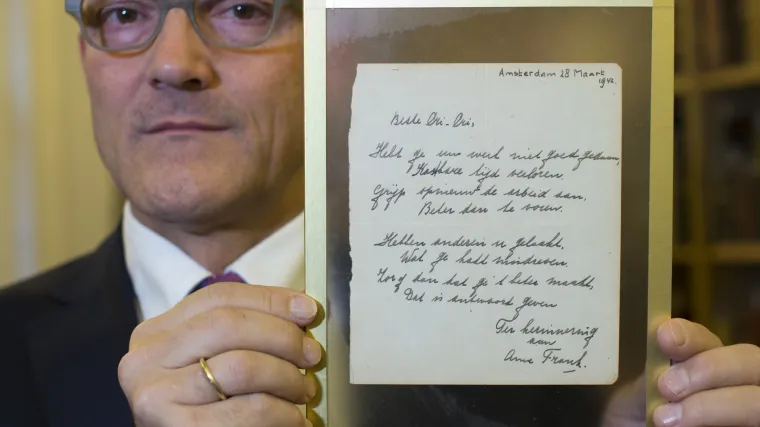 Amsterdam 28 Maart
1942.
Beste Cri-Cri,
Hebt ge uw werk niet goed gedaan,
Kostbare tijd verloren.
Grijp opnieuw de arbeid aan,
Beter dan te voren.
Hebben anderen u gelaakt,
Wat ge hadt misdreven.
Zorg dan dat gij 't beter maakt,
Dat is antwoord geven
Ter herinnering
aan
Anne Frank.